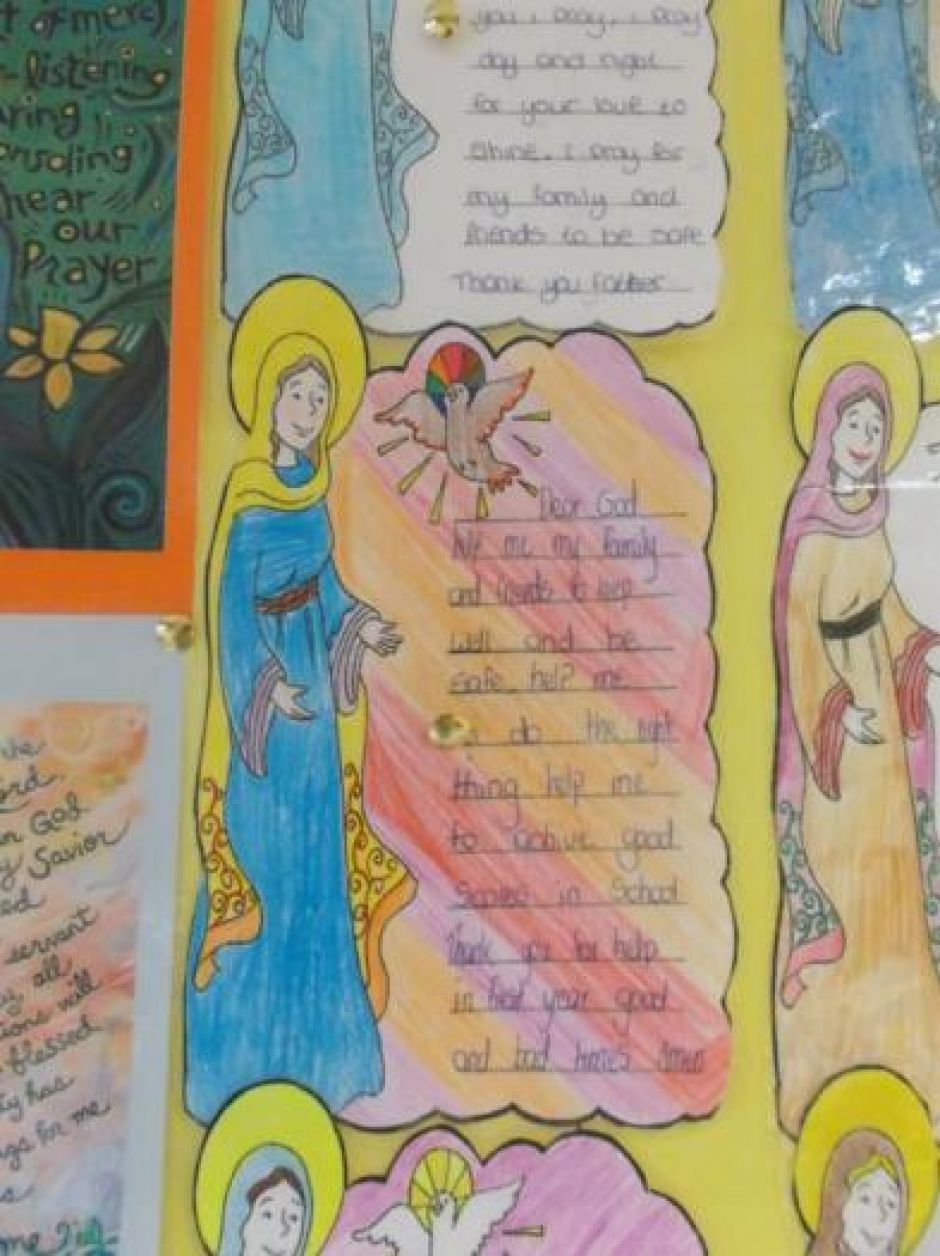 of mercy
listening
hear
our
Prayer
you I pray, I pray
day and night
for your love to
shine. I pray for
my family and
friends to be safe
Thank you Father
Dear God
help me my family
and friends to keep
well and be
safe help me
do the right
thing help me
to achive good
Scores in School
thank you for help
in year good
and bad times Amen
God
Savior
servant
all
will
blessed
has
for me
me